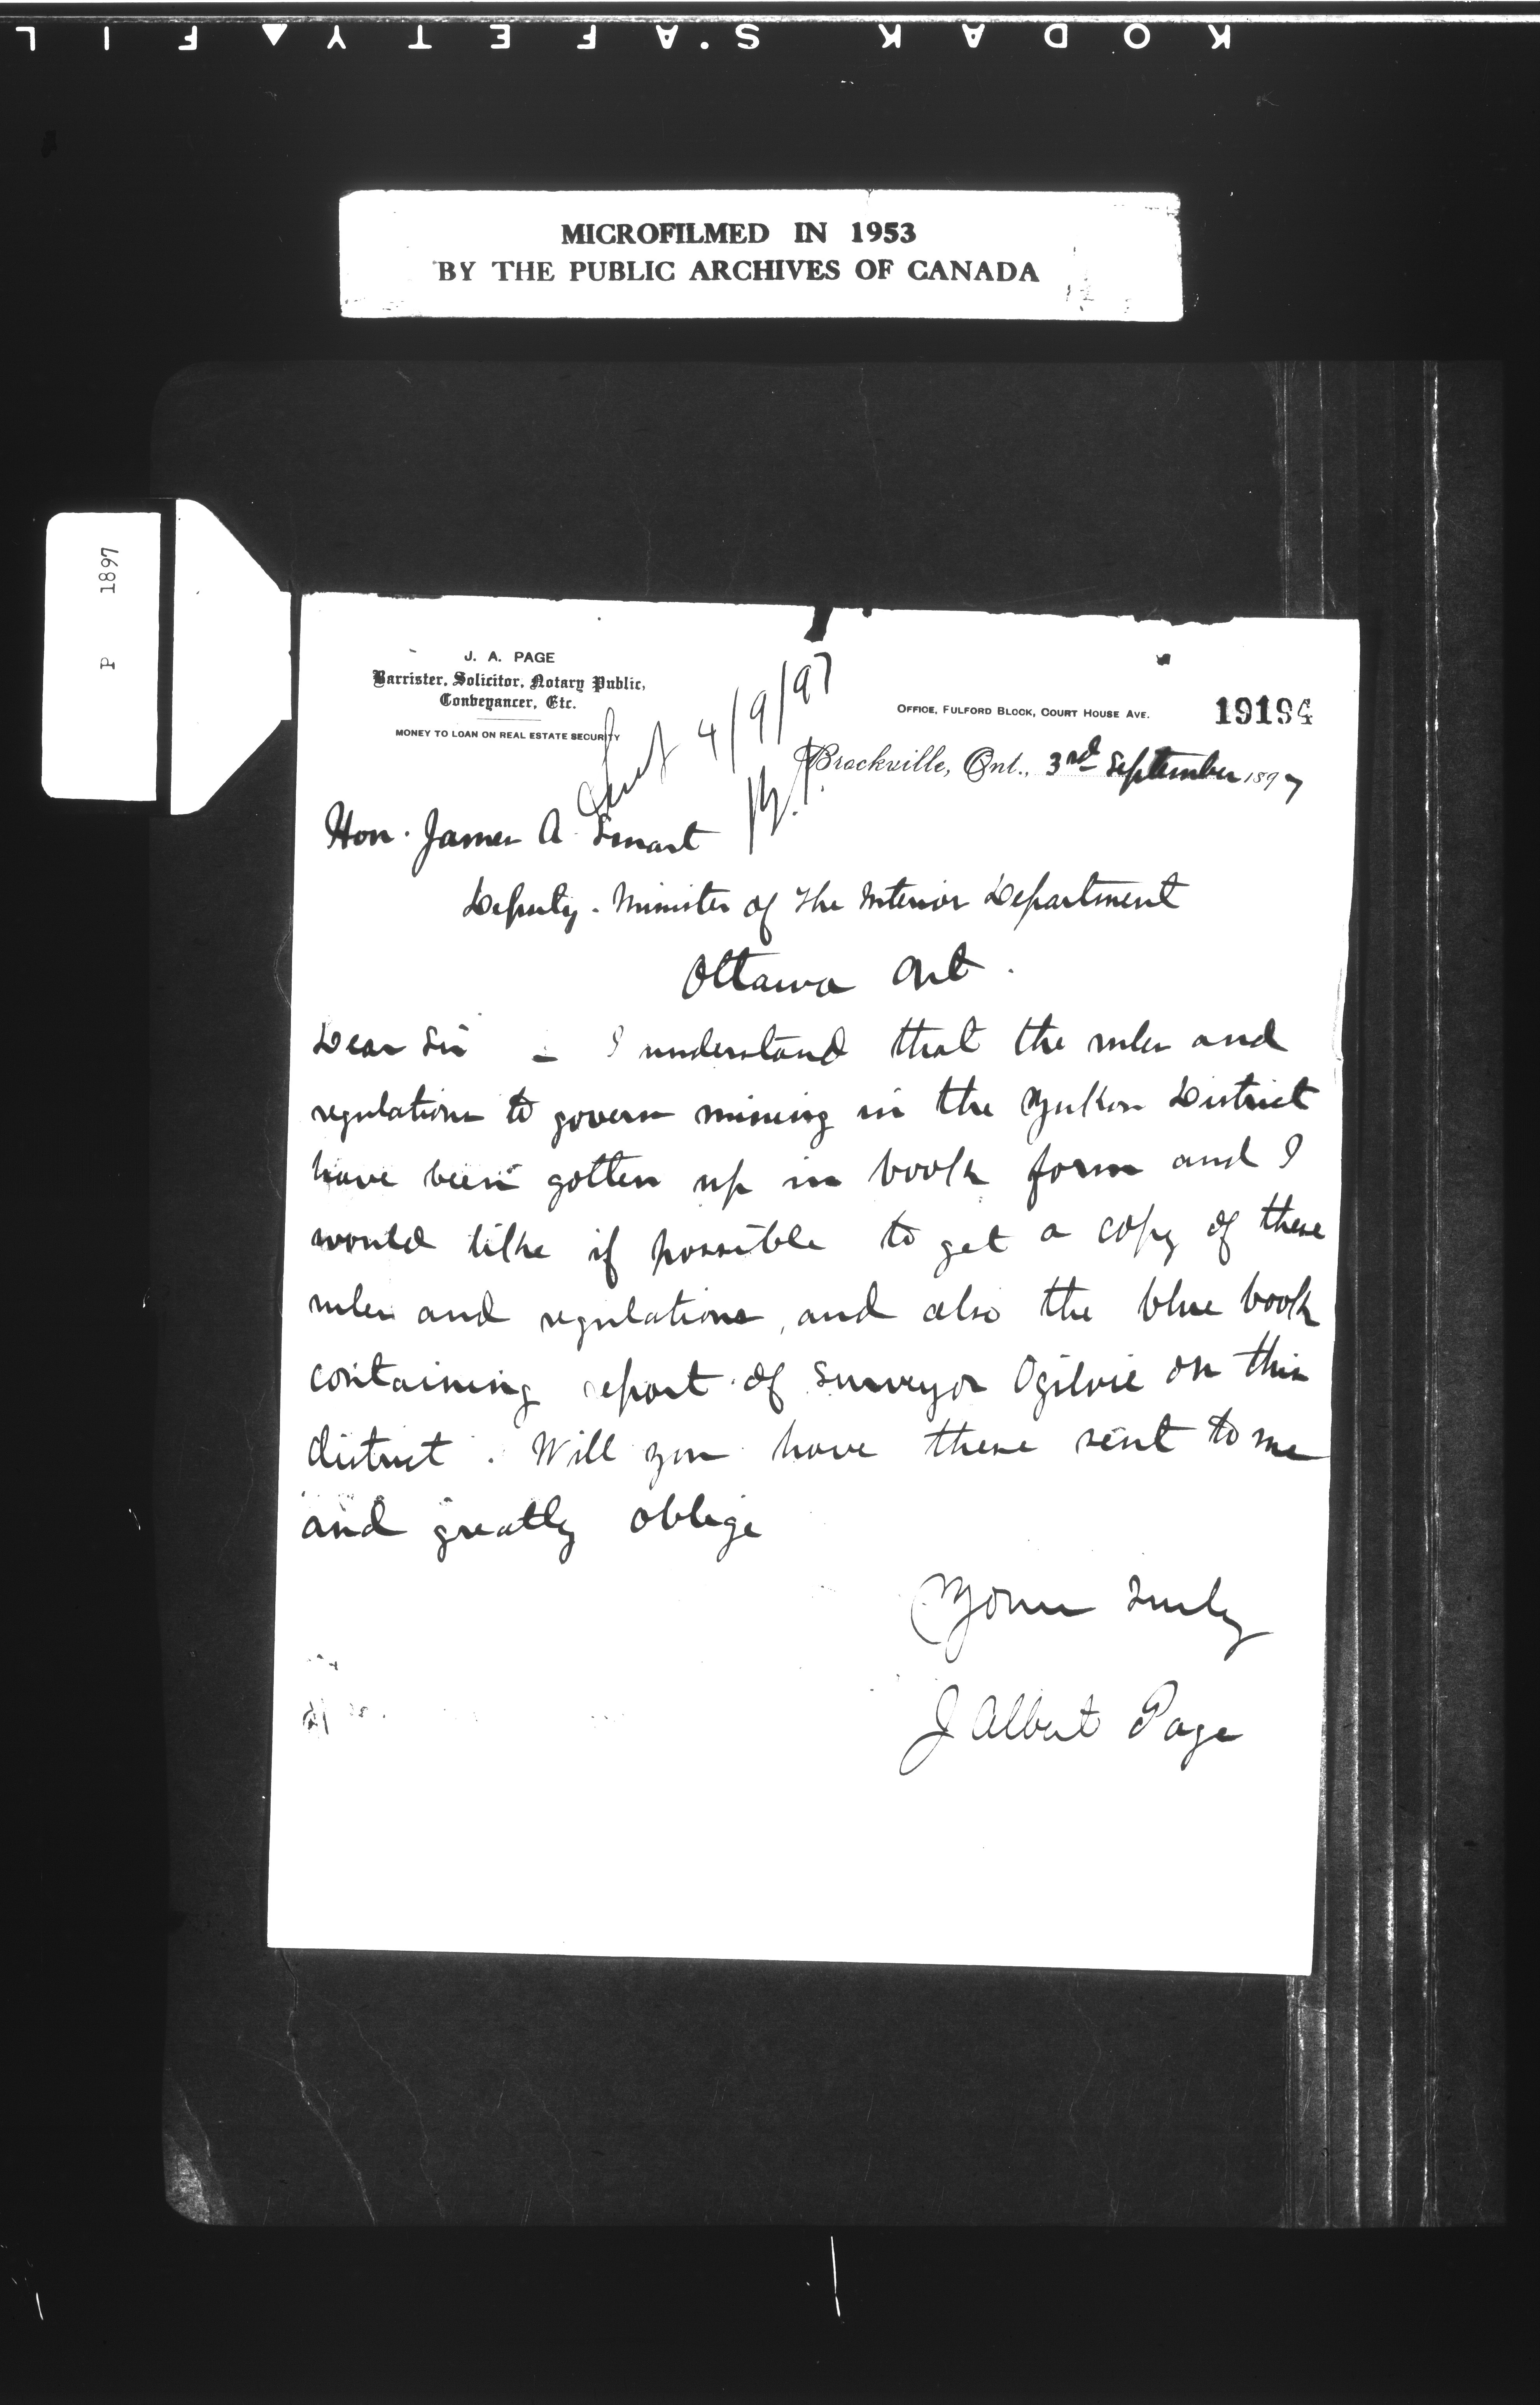 KODAK S.AFETY FIL
MICROFILMED IN 1953
BY THE PUBLIC ARCHIVES OF CANADA
P 1897
J. A. PAGE
Barrister, Solicitor, Notary Public,
Conveyancer, Etc.
MONEY TO LOAN ON REAL ESTATE SECURITY
OFFICE, FULFORD BLOCK, COURT HOUSE AVE.
19194
Sent 4/9/97
Brockville, Ont., 3rd September 1897
Hon. James A. Smart
Deputy. Minister of the Interior Department
Ottawa Ont.
Dear Sir - I understand that the rules and
regulations to govern mining in the Yukon District
have been gotten up in book form and I
would like if possible to get a copy of these
rules and regulations, and also the blue book
containing report of Surveyor Ogilvie on this
district. Will you have these sent to me
and greatly oblige
Yours truly
J Albert Page